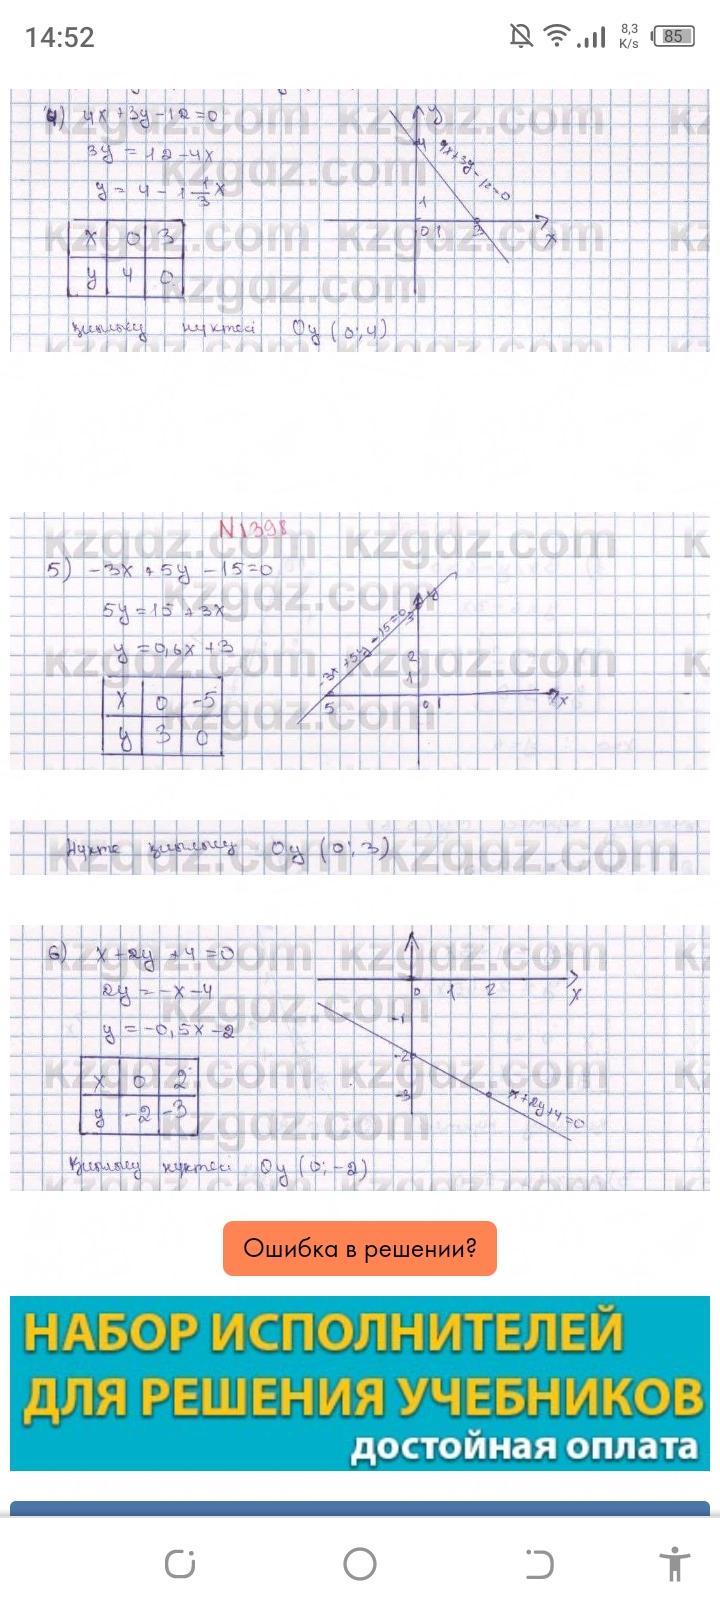 14:52
8,3 K/s 85
4) 4x+3y-12=0
3y = 12-4x
y = 4 - 1 1/3 x
x 0 3
y 4 0
y
4
4x+3y-12=0
1
0 1 3 x
қиылысу нүктесі Oy (0; 4)
N1398
5) -3x+5y-15=0
5y=15+3x
y=0,6x+3
x 0 -5
y 3 0
y
3
-3x+5y-15=0
2
1
5 0 1 x
Нүкте қиылысу Oy (0; 3)
6) x+2y+4=0
2y=-x-4
y=-0,5x-2
x 0 2
y -2 -3
0 1 2 x
-1
-2
-3
x+2y+4=0
Қиылысу нүктесі Oy (0; -2)
kzgdz.com
Ошибка в решении?
НАБОР ИСПОЛНИТЕЛЕЙ
ДЛЯ РЕШЕНИЯ УЧЕБНИКОВ
достойная оплата